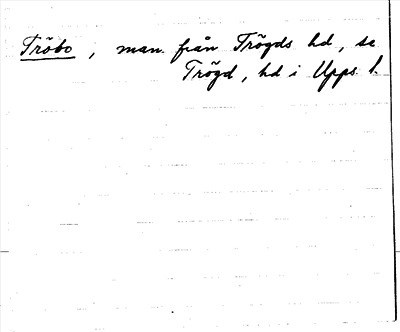 Tröbo, man från Trögds hd, se
Trögd, hd i Upps l.